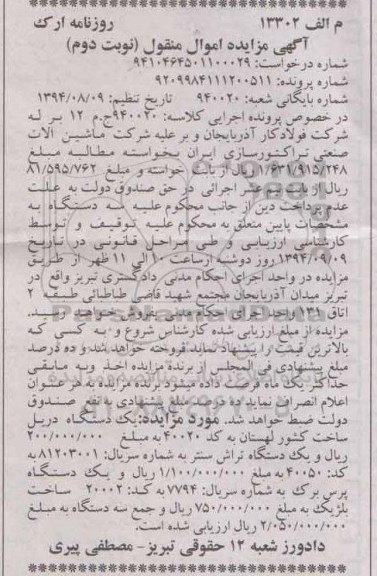 م الف ۱۳۳۰۲ روزنامه ارک
آگهی مزایده اموال منقول (نوبت دوم)
شماره درخواست: ۹۴۱۰۴۶۴۵۰۱۱۰۰۰۲۹
شماره پرونده: ۹۲۰۹۹۸۴۱۱۱۲۰۰۵۱۱
شماره بایگانی شعبه: ۹۴۰۰۲۰ تاریخ تنظیم: ۱۳۹۴/۰۸/۰۹
در خصوص پرونده اجرایی کلاسه: ۹۴۰۰۲۰ج.م ۱۲ بر له
شرکت فولادکار آذربایجان و بر علیه شرکت ماشین آلات
صنعتی تراکتورسازی ایران بخواسته مطالبه مبلغ
۱/۶۳۱/۹۱۵/۲۴۸ ریال از بابت خواسته و مبلغ ۸۱/۵۹۵/۷۶۲
ریال از بابت نیم عشر اجرائی در حق صندوق دولت به علت
عدم پرداخت دین از جانب محکوم علیه سه دستگاه به
مشخصات پایین متعلق به محکوم علیه توقیف و توسط
کارشناسی ارزیابی و طی مراحل قانونی در تاریخ
۱۳۹۴/۰۹/۰۹ روز دوشنبه ازساعت ۱۰ الی ۱۱ ظهر از طریق
مزایده در واحد اجرای احکام مدنی دادگستری تبریز واقع در
تبریز میدان آذربایجان مجتمع شهید قاضی طباطبائی طبقه ۲
اتاق ۱۳۱ واحد اجرای احکام مدنی بفروش خواهد رسید.
مزایده از مبلغ ارزیابی شده کارشناس شروع و به کسی که
بالاترین قیمت را پیشنهاد نماید فروخته خواهد شد و ده درصد
مبلغ پیشنهادی فی المجلس از برنده مزایده اخذ وبه مابقی
حداکثر یک ماه فرصت داده میشود برنده مزایده به هر عنوان
اعلام انصراف نماید ده درصد مبلغ پیشنهادی به نفع صندوق
دولت ضبط خواهد شد. مورد مزایده: یک دستگاه دریل
ساخت کشور لهستان به کد ۴۰۰۲۰ به مبلغ ۲۰۰/۰۰۰/۰۰۰
ریال و یک دستگاه تراش سنتر به شماره سریال: ۸۱۲۰۳۰۰۱ به
کد: ۴۰۰۵۰ به مبلغ ۱/۱۰۰/۰۰۰/۰۰۰ ریال و یک دستگاه
پرس برک به شماره سریال: ۷۷۹۴ به کد: ۲۰۰۰۲ ساخت
بلژیک به مبلغ ۷۵۰/۰۰۰/۰۰۰ ریال و جمع سه دستگاه به مبلغ
۲/۰۵۰/۰۰۰/۰۰۰ ریال ارزیابی شده است.
دادورز شعبه ۱۲ حقوقی تبریز- مصطفی پیری